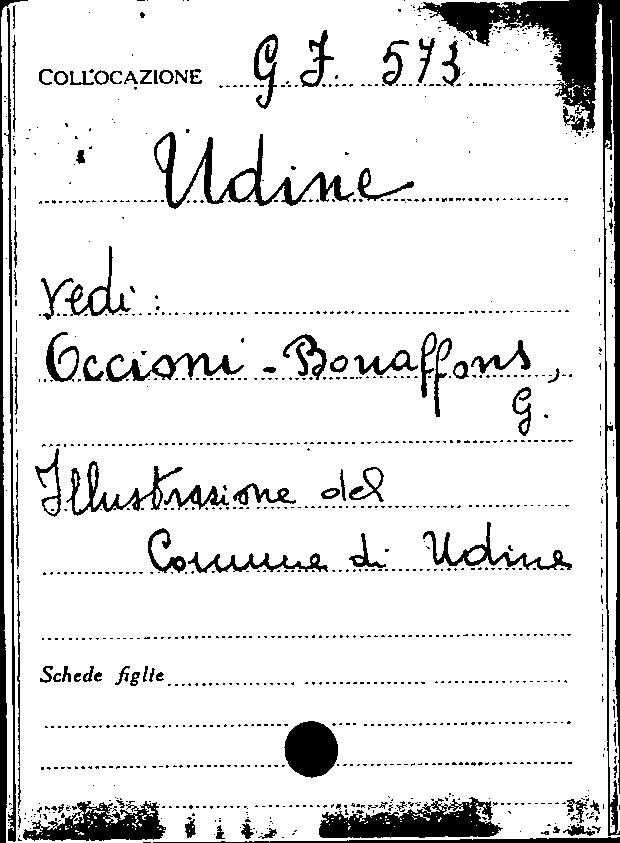 COLLOCAZIONE G. F. 573
Udine
vedi:
Occioni-Bonaffons,
G.
Illustrazione del
Comune di Udine
Schede figlie